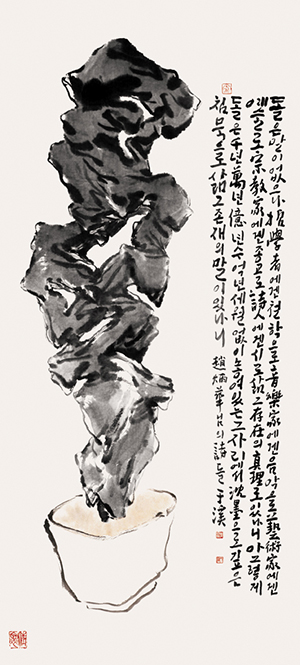 돌은 말이 없으나 哲學者에겐 철학으로 音樂家에겐 음악으로 藝術家에겐
예술로 宗敎家에겐 종교로 詩人에겐 시로 그 存在의 眞理로 있나니 아 그렇게
돌은 千년 萬년 億년 수억년 세월 없이 놓여 있는 그 자리에서 沈墨으로 깊은
침묵으로 그 존재의 말이 있나니 趙炳華님의 詩 돌 于溪